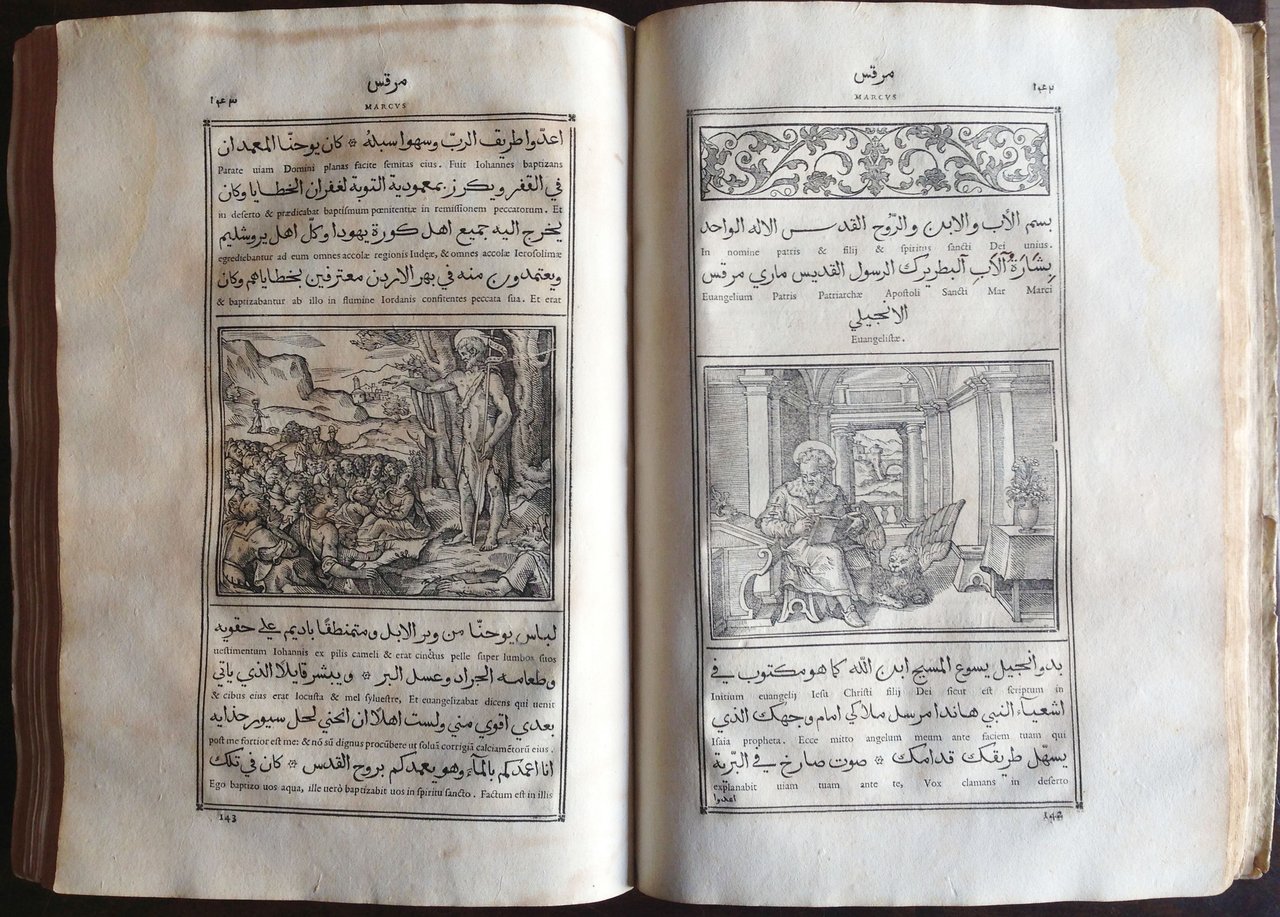 مرقس
١٤٢
MARCVS
بسم الأب والابن والرّوح القدس الاله الواحد
In nomine patris & filij & spiritus sancti Dei unius.
بشارة الآب البطريرك الرسول القديس ماري مرقس
Euangelium Patris Patriarchæ Apostoli Sancti Mar Marci
الانجيلي
Euangelistæ.
بدو انجيل يسوع المسيح ابن الله كما هو مكتوب في
Initium euangelij Iesu Christi filij Dei sicut est scriptum in
اشعياء النبي هاندا مرسل ملاكي امام وجهك الذي
Isaia propheta. Ecce mitto angelum meum ante faciem tuam qui
يسهّل طريقك قدامك ۞ صوت صارخ في البّرية
explanabit uiam tuam ante te, Vox clamans in deserto
اعدوا
142
مرقس
١٤٣
MARCVS
اعدّوا طريق الربّ وسهوا سبلهُ ۞ كان يوحنّا المعمدان
Parate uiam Domini planas facite semitas eius. Fuit Iohannes baptizans
في القفر ويكرز بمعمودية التوبة لغفران الخطايا وكان
in deserto & prædicabat baptismum pœnitentiæ in remissionem peccatorum. Et
يخرج اليه جميع اهل كورة يهودا وكلّ اهل يروشليم
egrediebantur ad eum omnes accolæ regionis Iudęæ, & omnes accolæ Ierosolimæ
ويعتمدون منه في نهر الاردن معترفين بخطاياهم وكان
& baptizabantur ab illo in flumine Iordanis confitentes peccata sua. Et erat
لباس يوحنّا من وبر الابل ومتمنطقًا باديم على حقويه
uestimentum Iohannis ex pilis cameli & erat cinctus pelle super lumbos suos
وطعامه الجراد وعسل البر ۞ ويبشر قايلا الذي ياتي
& cibus eius erat locusta & mel syluestre, Et euangelizabat dicens qui uenit
بعدي اقوي مني ولست اهلا ان انحني لحل سيور حذايه
post me fortior est me: & nō sū dignus procūbere ut soluā corrigiā calciamētorū eius.
انا اعمدكم بالماء وهو يعمدكم بروح القدس ۞ كان في تلك
Ego baptizo uos aqua, ille uerò baptizabit uos in spiritu sancto. Factum est in illis
143